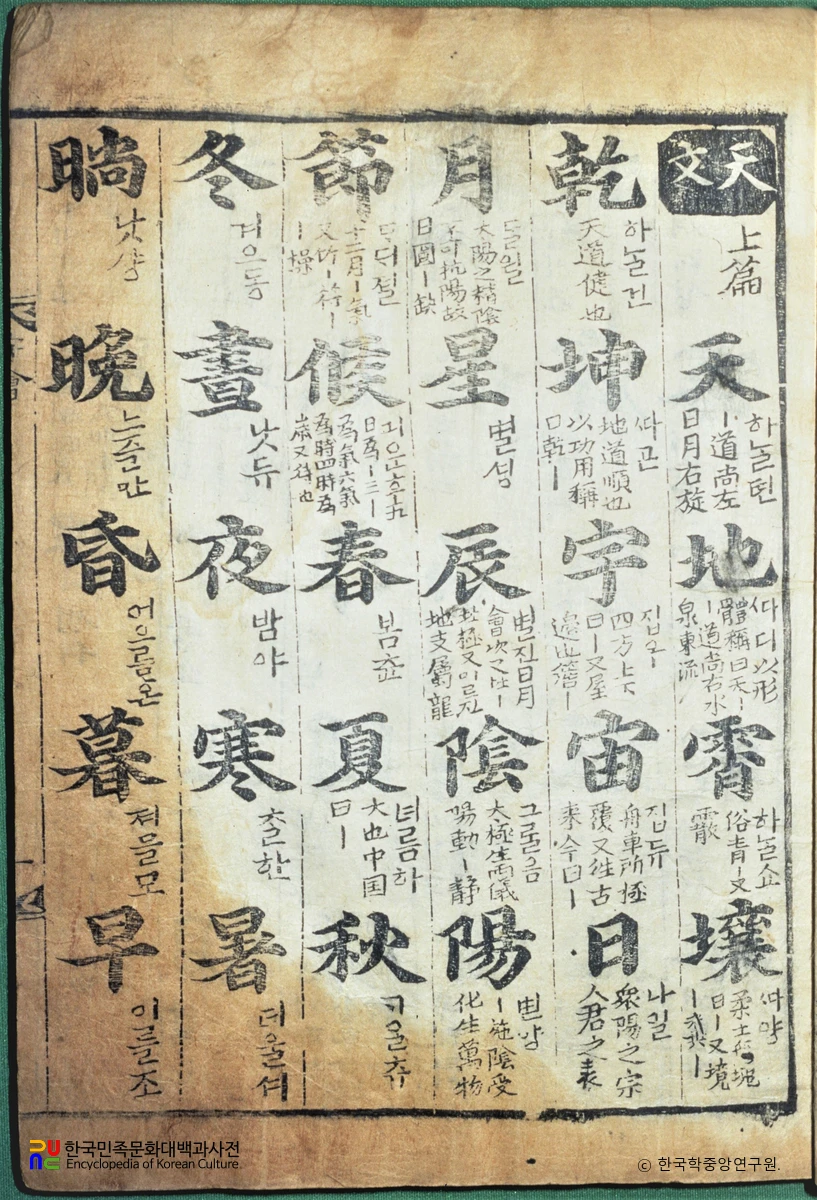 天文
上篇
天
하ᄂᆞᆯ텬
丨道尚左
日月右旋
地
ᄯᅡ디以形
體稱曰天丨
丨道尚右水
泉東流
霄
하ᄂᆞᆯ쇼
俗青丨又
霰
壤
ᄯᅡ양
柔土無塊
曰丨又境
乾
하ᄂᆞᆯ건
天道健也
坤
ᄯᅡ곤
地道順也
以功用稱
乾丨
宇
집우
四方上下
曰丨又屋
邊也簷丨
宙
집듀
舟車所極
覆又往古
來今曰丨
日
나일
衆陽之宗
人君之表
月
ᄃᆞᆯ월
太陽之精陰
不可抗陽故
日圓丨缺
星
별셩
辰
별진日月
會次之
地支屬龍
陰
그ᄂᆞᆯ음
太極生兩儀
陽動丨靜
陽
변양
丨施陰受
化生萬物
節
ᄆᆞᄃᆡ졀
十二月丨氣
又竹丨符丨
丨操
候
긔운후五
日爲丨三丨
爲氣六氣
爲時四時爲
歲又待也
春
봄츈
夏
녀름하
大也中国
曰丨
秋
ᄀᆞᄋᆞᆯ츄
冬
겨으동
晝
낫듀
夜
밤야
寒
ᄎᆞᆯ한
暑
더울셔
晌
낫샹
晩
느즐만
昏
어으름혼
暮
져믈모
早
이를조
한국민족문화대백과사전
Encyclopedia of Korean Culture
© 한국학중앙연구원.